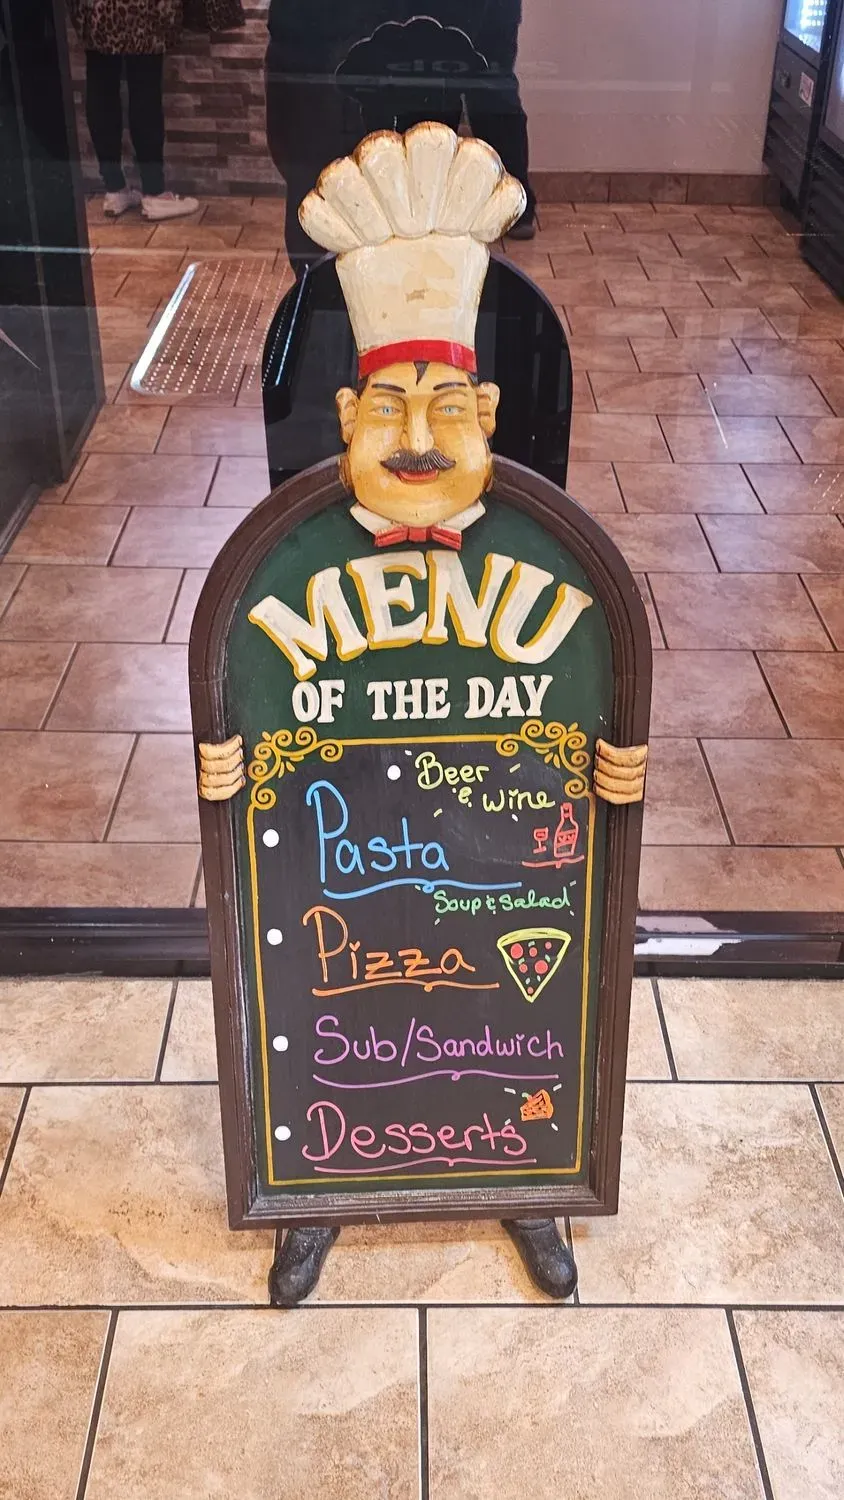 MENU
OF THE DAY
Beer
& wine
Pasta
Soup & Salad
Pizza
Sub/Sandwich
Desserts